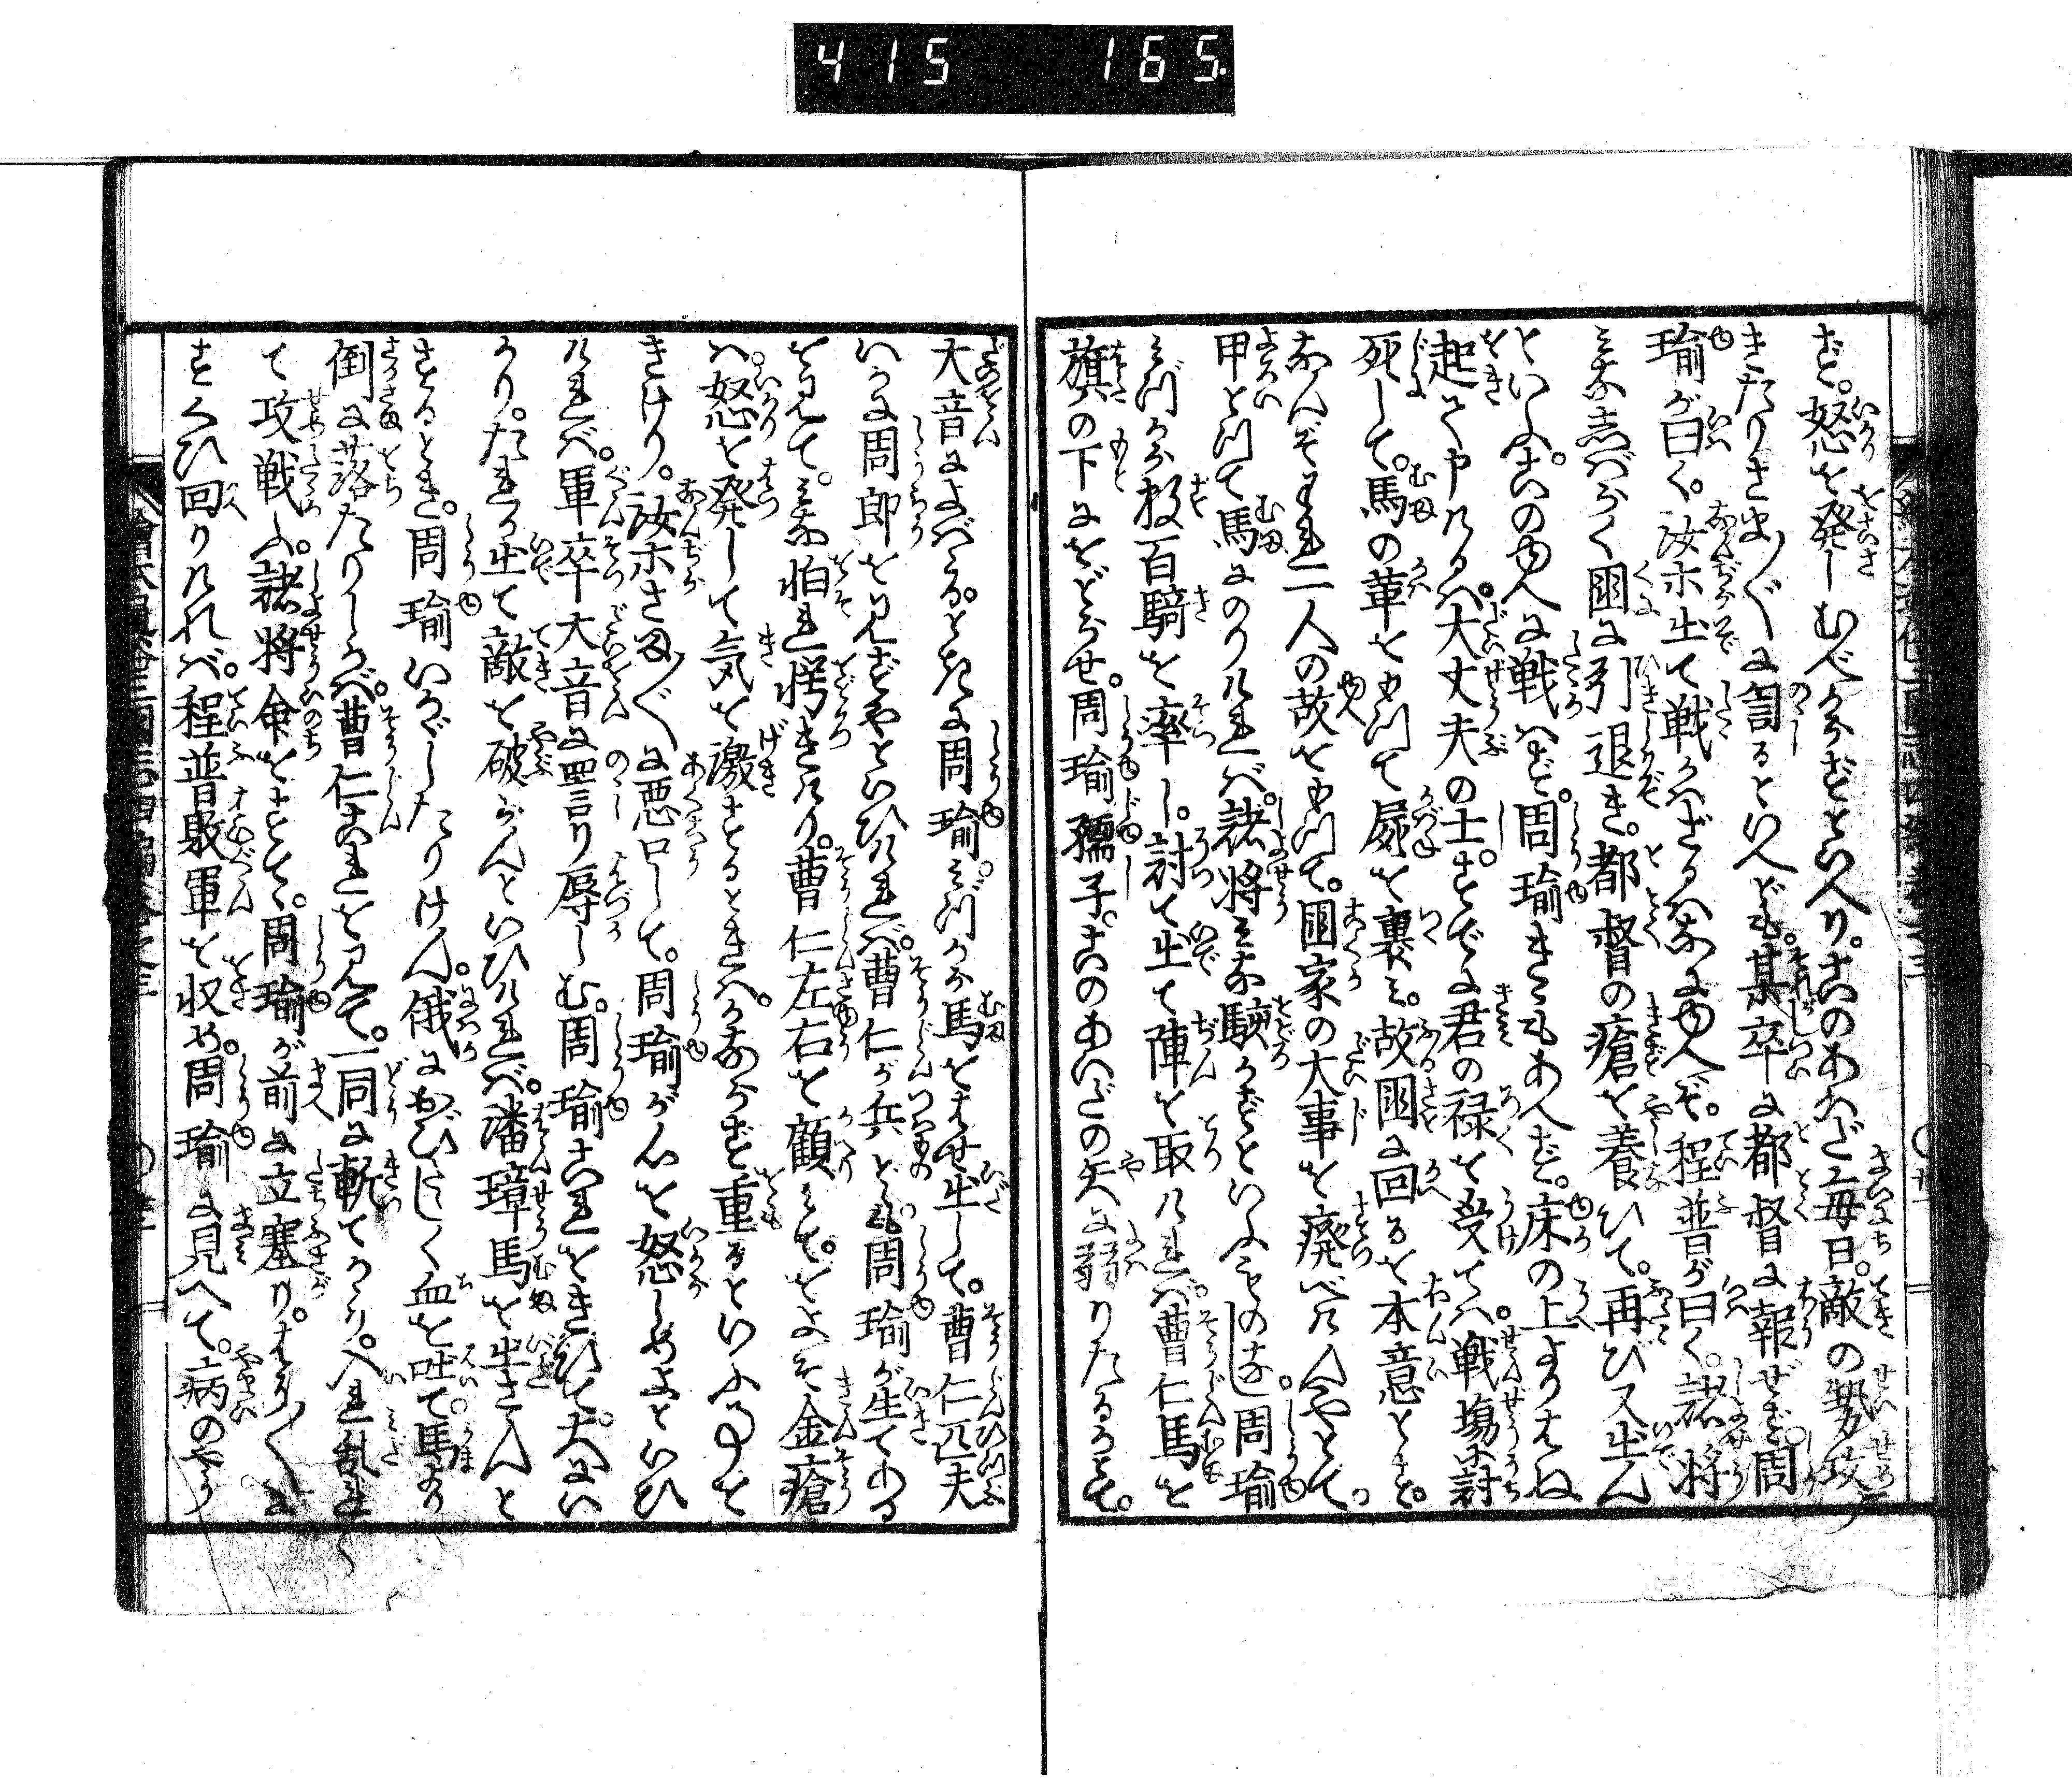 415 165
ず。怒を発しむべからずといへり。此のあいだ毎日。敵の勢攻
きたりさま〴〵に詈るといへども。某卒に都督に報ぜず。周
瑜が曰く。汝ホ出て戦かはざるは何ゆへぞ。程普が曰く。諸将
みな志ばらく国に引退き。都督の瘡を養ひて。再び又出ん
といふ。此のゆへに戦はず。周瑜きゝもあへず。床の上よりはね
起て申けるは。大丈夫の士。すでに君の禄を受ては。戦場に討
死して。馬の革をもつて屍を裹み。故国に回るを本意とす。
なんぞ我一人の故をもつて。国家の大事を廃べけんやとて。
甲をつけて馬にのりければ。諸将みな駭かずといふものなし。周瑜
みづから数百騎を率し。討て出て陣を取ければ。曹仁馬を
旗の下にをどらせ。周瑜孺子。此のあいだの矢に弱りたるかとて。
大音によばゝる。ときに周瑜。みづから馬をはせ出して。曹仁匹夫
いかに周郎を見ずやといひければ。曹仁が兵ども。周瑜が生てある
を見て。みな怕れ愕きけり。曹仁左右を顧みて。をよそ金瘡
は。怒を発して気を激するときは。かならず重るといふ事を
きけり。汝ホさま〴〵に悪口して。周瑜が心を怒しめよといひ
ければ。軍卒大音に詈り辱しむ。周瑜これをきひて。大にい
かり。たれか出て敵を破らんといひければ。潘璋馬を出さんと
するとき。周瑜いかゞしたりけん。俄におびたゝしく血を吐て。馬より
倒に落たりしかば。曹仁これを見て。一同に斬てかゝり。入れ乱れ
て攻戦ふ。諸将命をすてゝ。周瑜が前に立塞り。やう〳〵に
すくひ回りければ。程普敗軍を収め。周瑜に見へて。病のやう